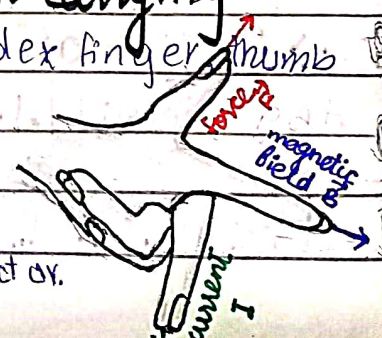 dex finger thumb
force F
magnetic
field B
current
I
ct or.